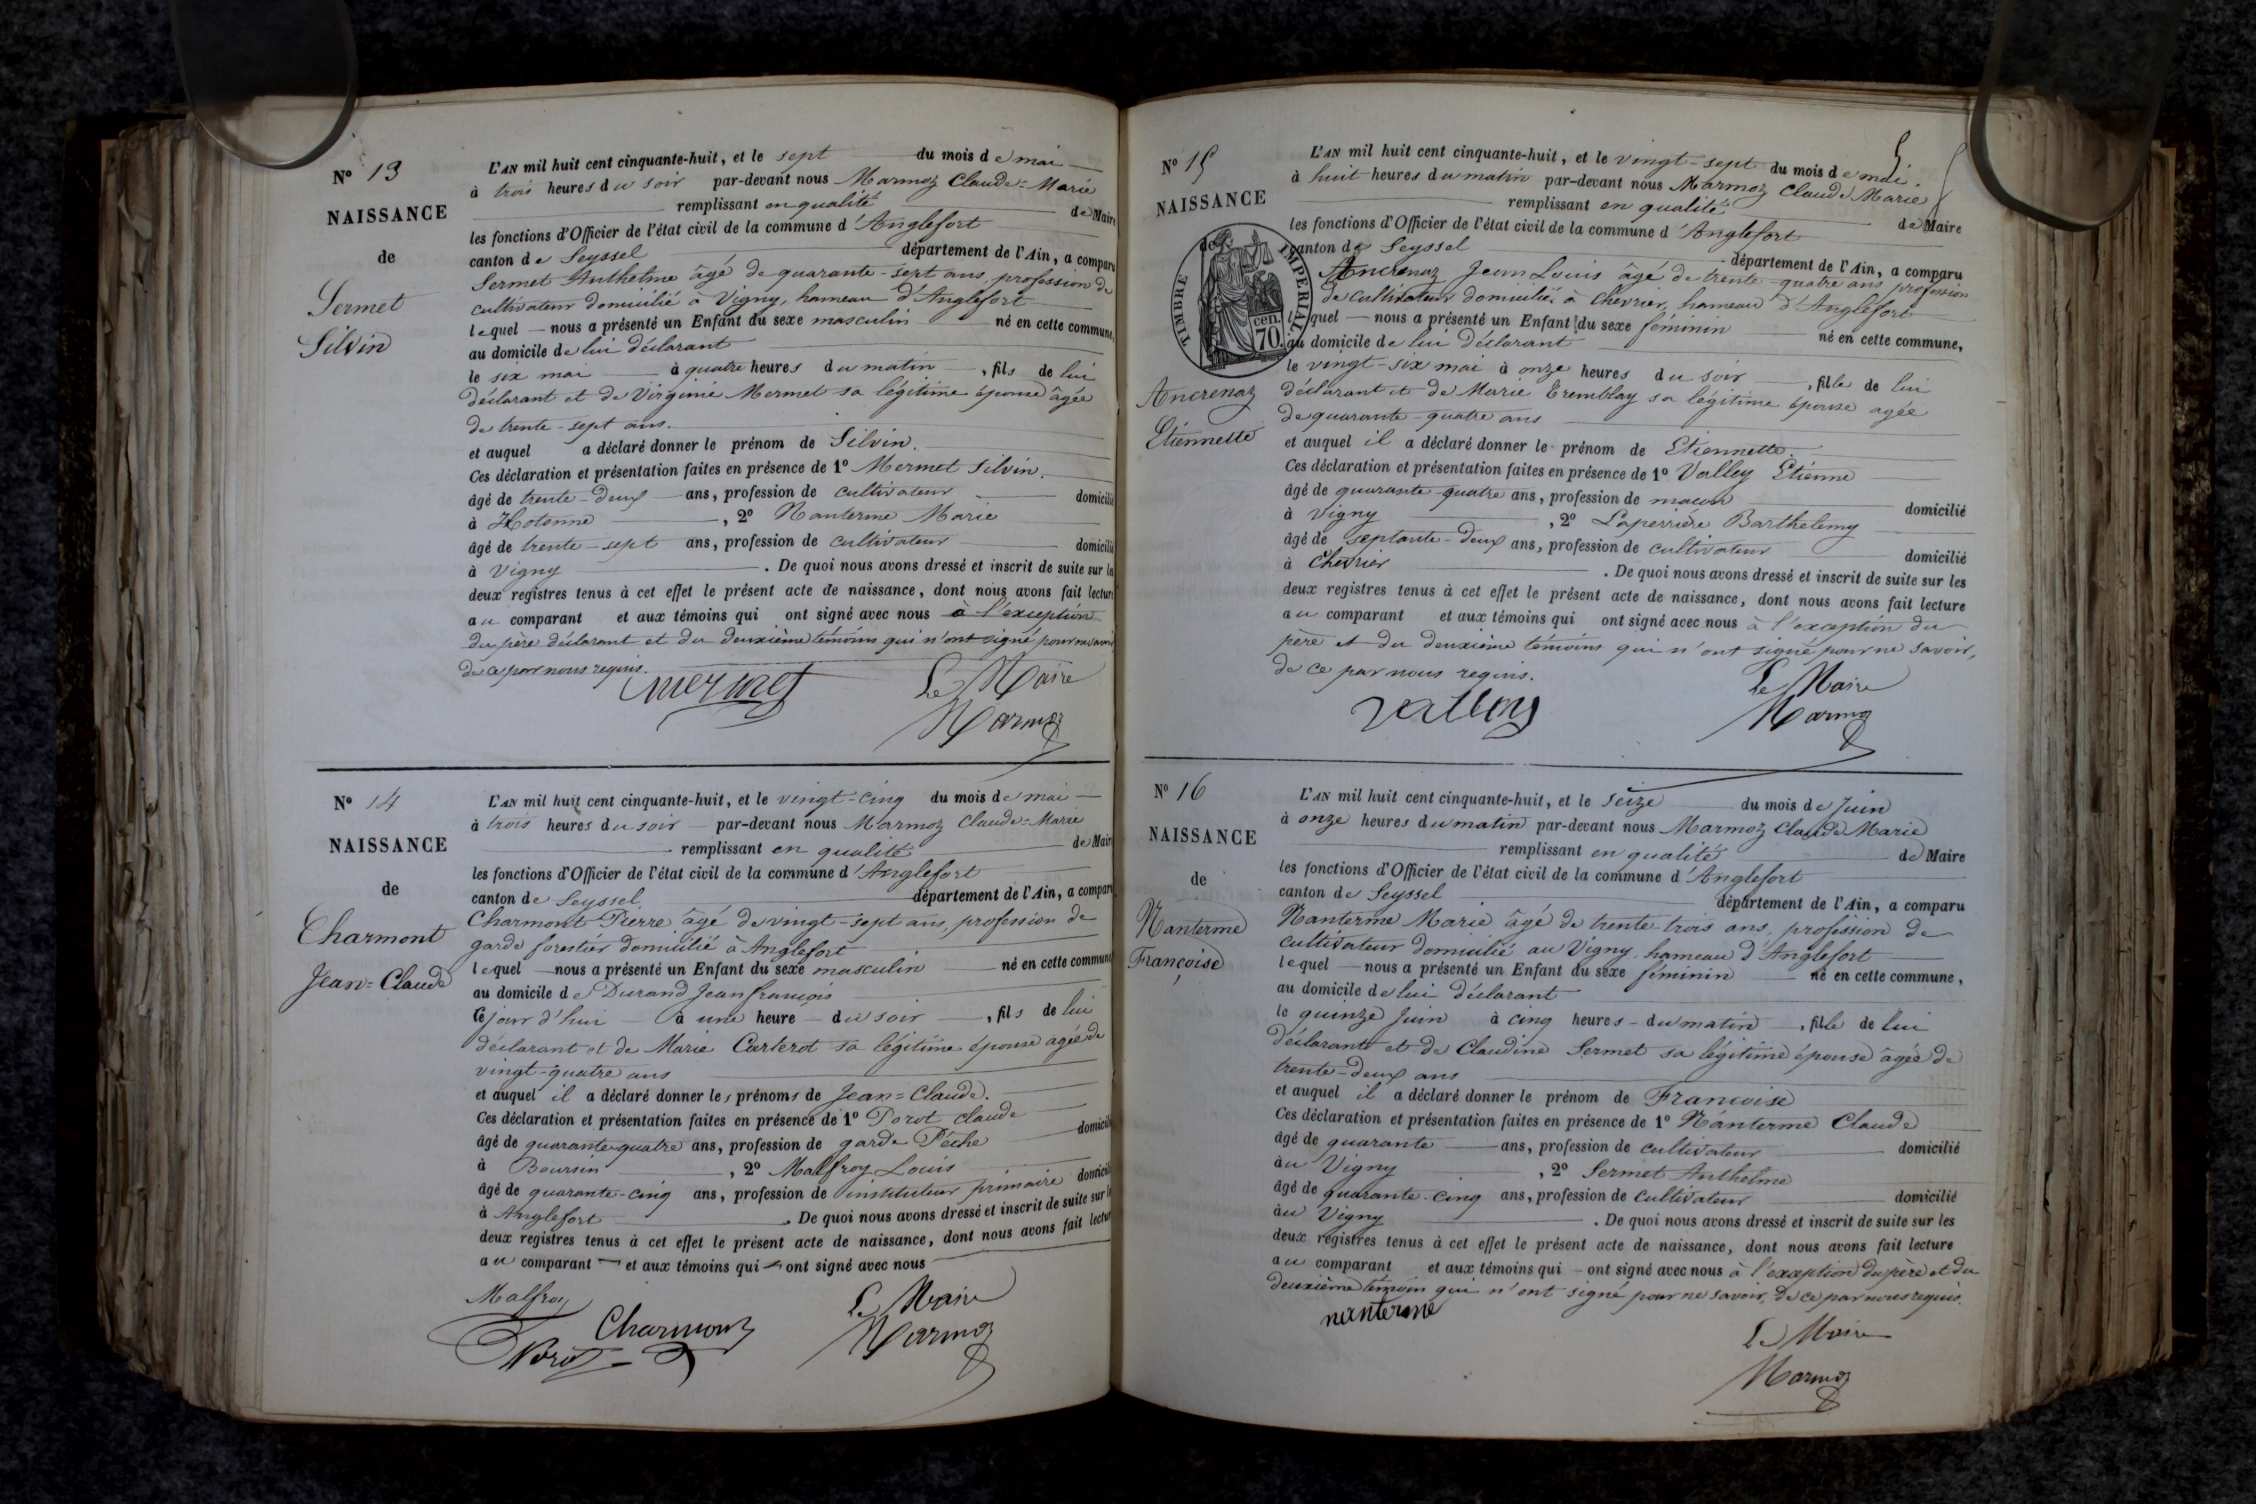 N° 13
NAISSANCE
de
Sermet
Silvin
L'AN mil huit cent cinquante-huit, et le sept du mois de mai
à trois heures du soir par-devant nous Marmoz Claude=Marie
remplissant en qualité de Maire
les fonctions d'Officier de l'état civil de la commune d'Anglefort
canton de Seyssel département de l'Ain, a comparu
Sermet Anthelme âgé de quarante-sept ans, profession de
cultivateur domicilié à Vigny, hameau d'Anglefort
lequel nous a présenté un Enfant du sexe masculin né en cette commune,
au domicile de lui déclarant
le six mai à quatre heures du matin, fils de lui
déclarant et de Virginie Mermet sa légitime épouse âgée
de trente-sept ans.
et auquel a déclaré donner le prénom de Silvin.
Ces déclaration et présentation faites en présence de 1° Mermet Silvin.
âgé de trente-deux ans, profession de cultivateur domicilié
à Hotonne, 2° Nanterme Marie
âgé de trente-sept ans, profession de cultivateur domicilié
à Vigny. De quoi nous avons dressé et inscrit de suite sur les
deux registres tenus à cet effet le présent acte de naissance, dont nous avons fait lecture
au comparant et aux témoins qui ont signé avec nous à l'exception
du père déclarant et du deuxième témoins qui n'ont signé pour ne savoir
de ce par nous requis.
Mermet
Le Maire
Marmoz
N° 14
NAISSANCE
de
Charmont
Jean=Claude
L'AN mil huit cent cinquante-huit, et le vingt-cinq du mois de mai
à trois heures du soir par-devant nous Marmoz Claude=Marie
remplissant en qualité de Maire
les fonctions d'Officier de l'état civil de la commune d'Anglefort
canton de Seyssel. département de l'Ain, a comparu
Charmont Pierre âgé de vingt-sept ans, profession de
garde forestier domicilié à Anglefort
lequel nous a présenté un Enfant du sexe masculin né en cette commune
au domicile de Durand Jean françois
ce jour d'hui à une heure du soir, fils de lui
déclarant et de Marie Carterot sa légitime épouse agée de
vingt-quatre ans
et auquel il a déclaré donner les prénoms de Jean=Claude.
Ces déclaration et présentation faites en présence de 1° Porot claude
âgé de quarante-quatre ans, profession de garde Pêche domicilié
à Boursin, 2° Malfroy Louis
âgé de quarante-cinq ans, profession de instituteur primaire domicilié
à Anglefort. De quoi nous avons dressé et inscrit de suite sur les
deux registres tenus à cet effet le présent acte de naissance, dont nous avons fait lecture
au comparant et aux témoins qui ont signé avec nous
Malfroy
Charmont
Porot
Le Maire
Marmoz
5
N° 15
NAISSANCE
de
TIMBRE IMPERIAL
70 cen.
Ancrenaz
Etiennette
L'AN mil huit cent cinquante-huit, et le vingt-sept du mois de mai.
à huit heures du matin par-devant nous Marmoz Claude Marie
remplissant en qualité de Maire
les fonctions d'Officier de l'état civil de la commune d'Anglefort
canton de Seyssel département de l'Ain, a comparu
Ancrenaz Jean Louis âgé de trente-quatre ans profession
de cultivateur domicilié à Chevrier, hameau d'Anglefort
lequel nous a présenté un Enfant du sexe féminin né en cette commune,
au domicile de lui déclarant
le vingt-six mai à onze heures du soir, fille de lui
déclarant et de Marie Tremblay sa légitime épouse agée
de quarante-quatre ans
et auquel il a déclaré donner le prénom de Etiennette.
Ces déclaration et présentation faites en présence de 1° Valley Etienne
âgé de quarante-quatre ans, profession de maçon domicilié
à Vigny, 2° Laperrière Barthelemy
âgé de septante-deux ans, profession de cultivateur domicilié
à Chevrier. De quoi nous avons dressé et inscrit de suite sur les
deux registres tenus à cet effet le présent acte de naissance, dont nous avons fait lecture
au comparant et aux témoins qui ont signé avec nous à l'exception du
père et du deuxième témoins qui n'ont signé pour ne savoir,
de ce par nous requis.
Valley
Le Maire
Marmoz
N° 16
NAISSANCE
de
Nanterme
Françoise
L'AN mil huit cent cinquante-huit, et le seize du mois de Juin
à onze heures du matin par-devant nous Marmoz Claude Marie
remplissant en qualité de Maire
les fonctions d'Officier de l'état civil de la commune d'Anglefort
canton de Seyssel département de l'Ain, a comparu
Nanterme Marie âgé de trente-trois ans, profession de
cultivateur domicilié au Vigny, hameau d'Anglefort
lequel nous a présenté un Enfant du sexe féminin né en cette commune,
au domicile de lui déclarant
le quinze Juin à cinq heures du matin, fille de lui
déclarant et de Claudine Sermet sa légitime épouse âgée de
trente-deux ans
et auquel il a déclaré donner le prénom de Françoise
Ces déclaration et présentation faites en présence de 1° Nanterme Claude
âgé de quarante ans, profession de cultivateur domicilié
àu Vigny, 2° Sermet Anthelme
âgé de quarante-cinq ans, profession de cultivateur domicilié
àu Vigny. De quoi nous avons dressé et inscrit de suite sur les
deux registres tenus à cet effet le présent acte de naissance, dont nous avons fait lecture
au comparant et aux témoins qui ont signé avec nous à l'exception du père et du
deuxième témoin qui n'ont signé pour ne savoir, de ce par nous requis.
nanterme
Le Maire
Marmoz